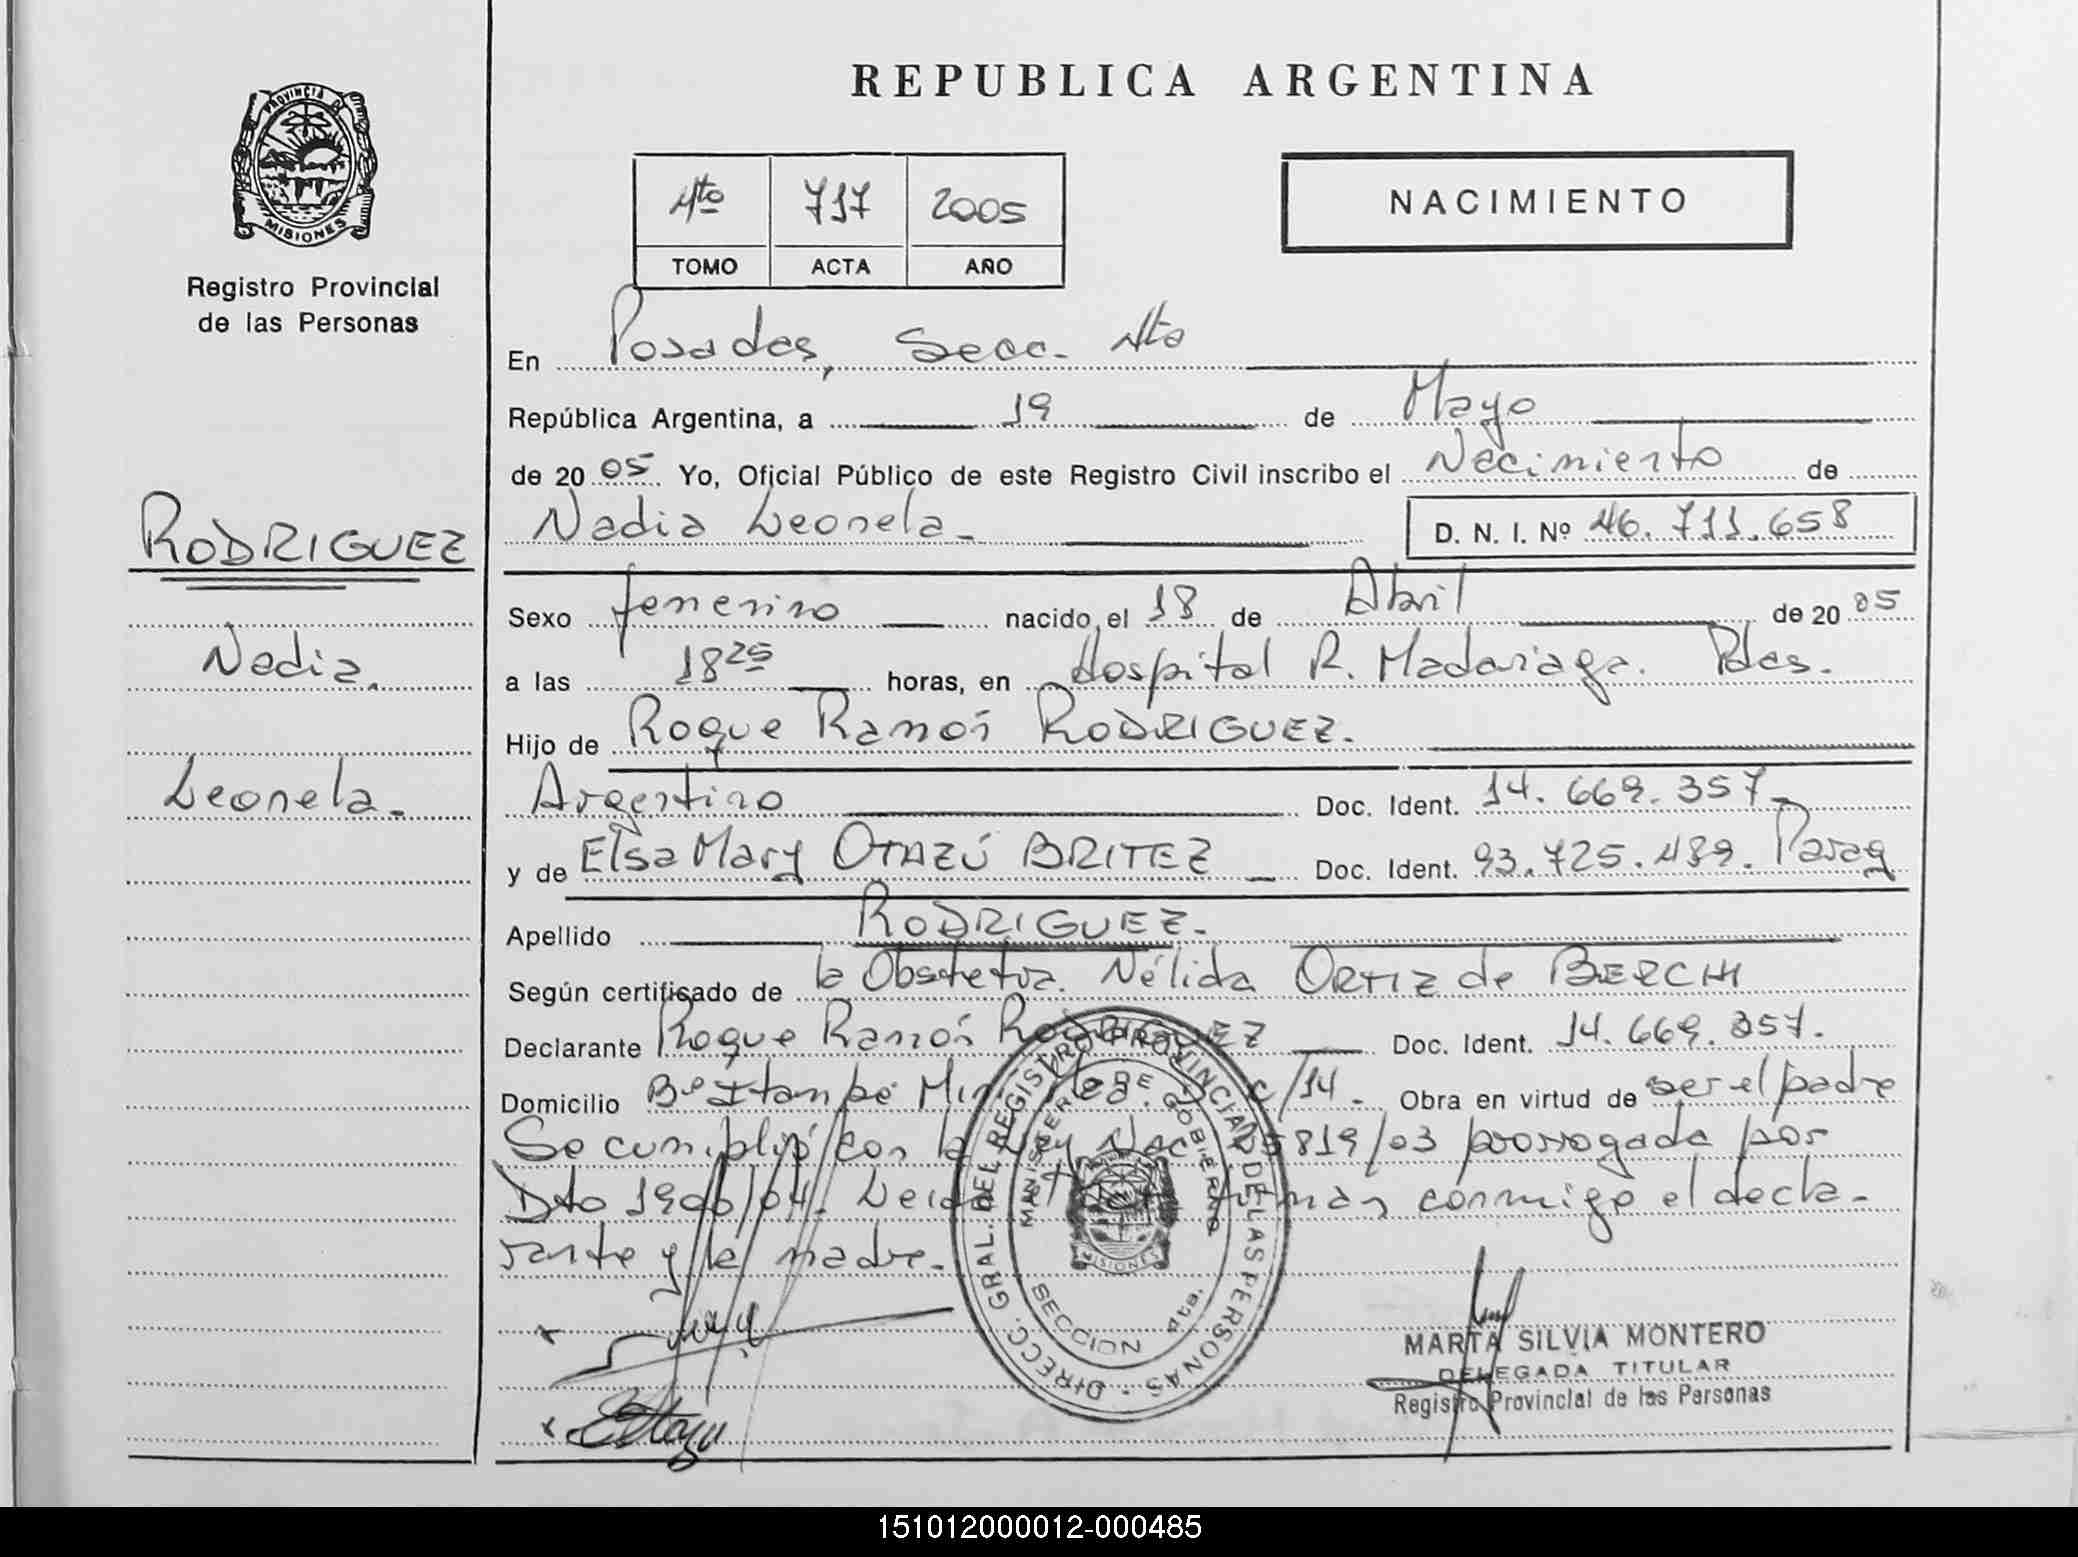 REPUBLICA ARGENTINA
PROVINCIA D
MISIONES
Registro Provincial
de las Personas
4to 717 2005
TOMO ACTA AÑO
NACIMIENTO
En Posadas, Secc. 4to
República Argentina, a 19 de Mayo
de 2005 Yo, Oficial Público de este Registro Civil inscribo el Nacimiento de
Nadia Leonela. D. N. I. Nº 46.711.658
RODRIGUEZ
Nadia
Leonela.
Sexo femenino nacido el 18 de Abril de 2005
a las 18 25 horas, en Hospital R. Madariaga. Pdas.
Hijo de Roque Ramón RODRIGUEZ.
Argentino Doc. Ident. 14.669.357
y de Elsa Mary OTAZÚ BRITEZ Doc. Ident. 93.725.489. Parag
Apellido RODRIGUEZ.
Según certificado de la Obstetra. Nélida ORTIZ de BERCHI
Declarante Roque Ramón RODRIGUEZ Doc. Ident. 14.669.357.
Domicilio Bº Itambé Miní c/14. Obra en virtud de ser el padre
Se cumplió con la Ley Nac 25819/03 prorrogada por
Dto 1906/04. Leida firman conmigo el decla-
rante y la madre.
DIRECC. GRAL. DEL REGISTRO PROVINCIAL DE LAS PERSONAS
MINISTERIO DE GOBIERNO
MISIONES
SECCION 4ta.
MARTA SILVIA MONTERO
DELEGADA TITULAR
Registro Provincial de las Personas
151012000012-000485